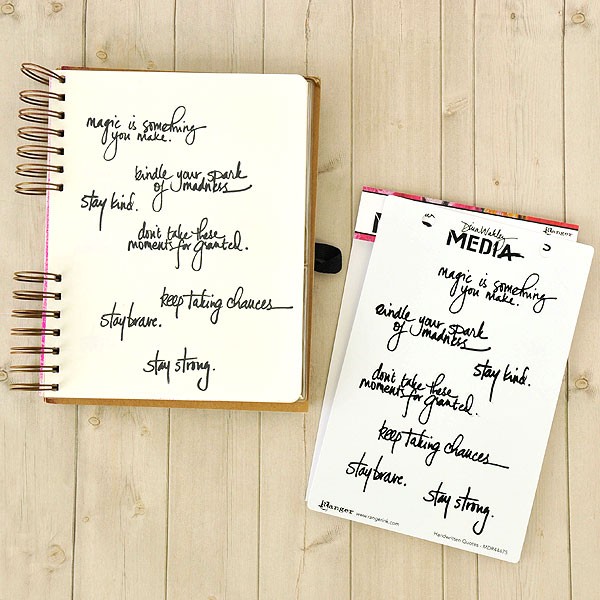 magic is something
you make.
kindle your spark
of madness
stay kind.
don't take these
moments for granted.
keep taking chances
stay brave.
stay strong.
Dina Wakley
MEDIA
Ranger
magic is something
you make.
kindle your spark
of madness
stay kind.
don't take these
moments for granted.
keep taking chances
stay brave.
stay strong.
Ranger www.rangerink.com
Handwritten Quotes - MDR44675